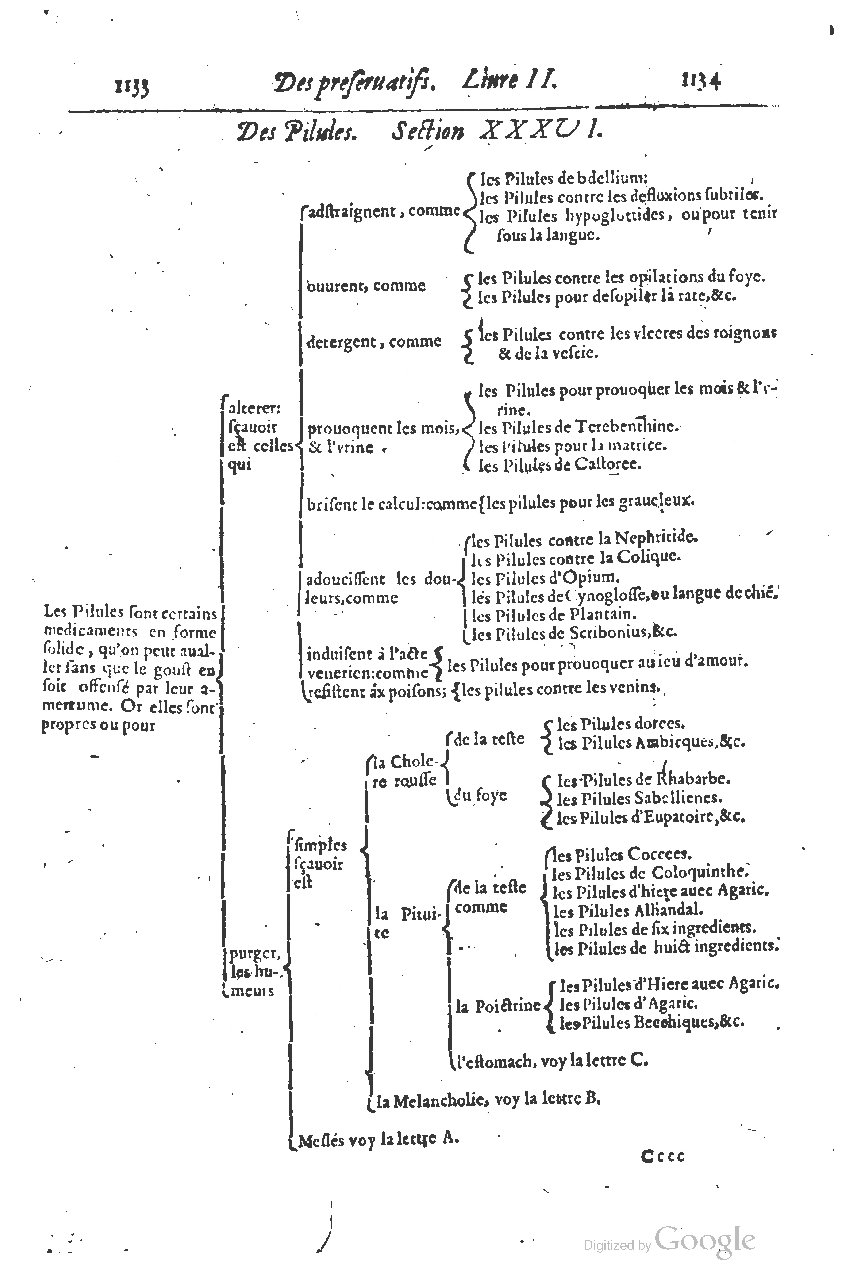 1133 Des preseruatifs. Liure II. 1134
Des Pilules. Section XXXVI.
Les Pilules sont certains
medicaments en forme
solide, qu'on peut aual-
ler sans que le goust en
soit offensé par leur a-
mertume. Or elles sont
propres ou pour
alterer:
sçauoir
est celles
qui
adstraignent, comme
les Pilules de bdellium:
les Pilules contre les defluxions subtiles.
les Pilules hypoglottides, ou pour tenir
sous la langue.
buurent, comme
les Pilules contre les opilations du foye.
les Pilules pour desopiler la rate,&c.
detergent, comme
les Pilules contre les vlceres des roignons
& de la vescie.
prouoquent les mois,
& l'vrine
les Pilules pour prouoquer les mois & l'v-
rine.
les Pilules de Terebenthine.
les Pilules pour la matrice.
les Pilules de Castoree.
brisent le calcul:comme les pilules pour les graueleux.
adoucissent les dou-
leurs,comme
les Pilules contre la Nephritide.
les Pilules contre la Colique.
les Pilules d'Opium.
les Pilules de Cynoglosse,ou langue de chié.
les Pilules de Plantain.
les Pilules de Scribonius,&c.
induisent à l'acte
venerien:comme
les Pilules pour prouoquer au ieu d'amour.
resistent áx poisons; les pilules contre les venins.
purger,
les hu-
meurs
simples
sçauoir
est
la Chole-
re rousse
de la teste
les Pilules dorees.
les Pilules Arabicques,&c.
du foye
les Pilules de Rhabarbe.
les Pilules Sabellienes.
les Pilules d'Eupatoire,&c.
la Pitui-
te
de la teste
comme
les Pilules Cocees.
les Pilules de Coloquinthe.
les Pilules d'hiere auec Agaric.
les Pilules Alhandal.
les Pilules de six ingredients.
les Pilules de huict ingredients.
la Poictrine
les Pilules d'Hiere auec Agaric.
les Pilules d'Agaric.
les Pilules Becchiques,&c.
l'estomach, voy la lettre C.
la Melancholie, voy la lettre B.
Meslés voy la lettre A.
Cccc
Digitized by Google